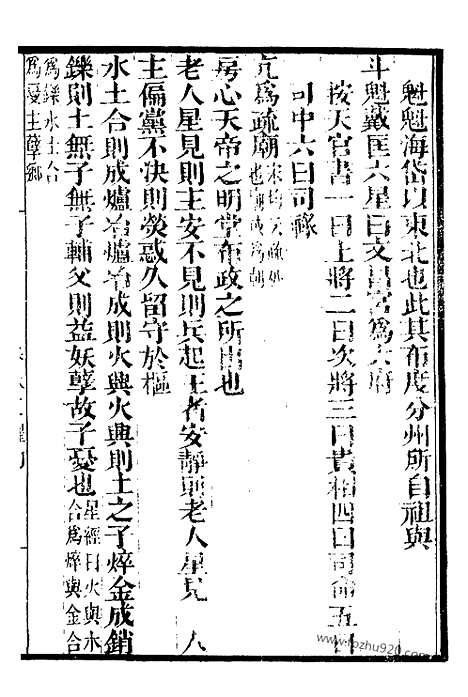 魁魁海岱以東北也此其布度分州所自祖與
斗魁戴匡六星曰文昌宮爲六府
按天官書一曰上將二曰次將三曰貴相四曰司命五曰
司中六曰司祿
亢爲疏廟
房心天帝之明堂布政之所出也
老人星見則主安不見則兵起王者安靜則老人星見 人
主偏黨不決則熒惑久留守於樞
水土合則成爐冶爐冶成則火興火興則土之子焠金成銷
鑠則土無子無子輔父則益妖孽故子憂也星經曰火與水合爲焠與金合
爲鑠水土合爲憂主孽卿
www.fozhu920.com